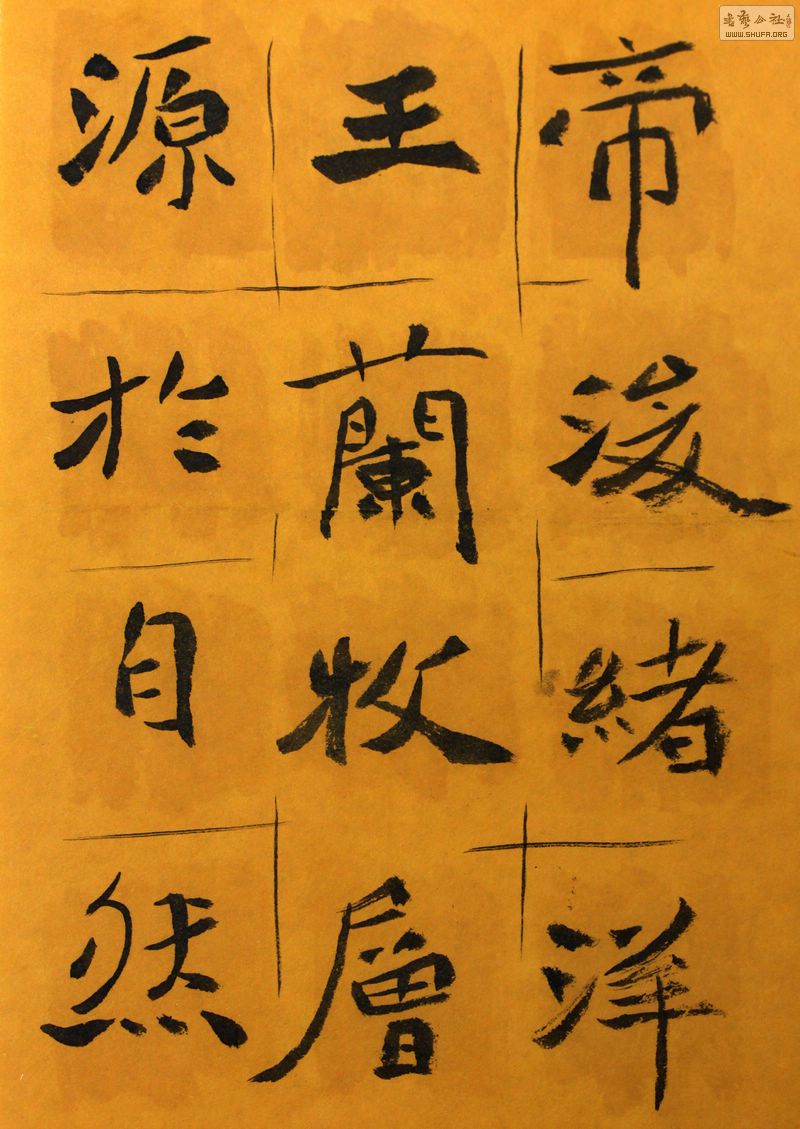 帝浚緒洋
王蘭牧層
源於自然
書藝公社
WWW.SHUFA.ORG